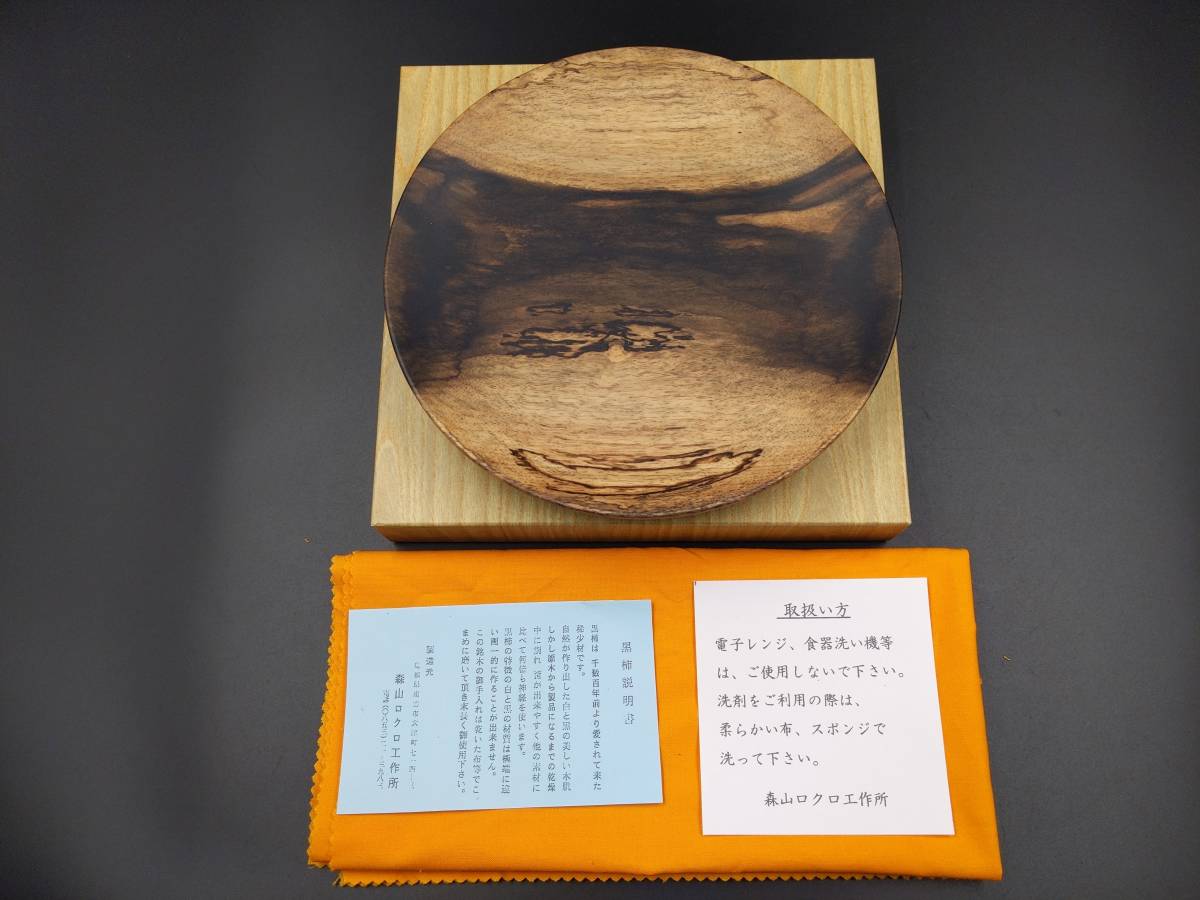 黒柿説明書
黒柿は 千数百年前より愛されて来た
稀少材です。
自然が作り出した白と黒の美しい木肌
しかし原木から製品になるまでの乾燥
中に割れ 宮が出来やすく他の素材に
比べて何倍も神経を使います。
黒柿の特徴の白と黒の材質は極端に違
い画一的に作ることが出来ません。
この銘木の御手入れは乾いた布等でこ、
まめに磨いて頂き末長く御使用下さい。
製造元
森山ロクロ工作所
取扱い方
電子レンジ、食器洗い機等
は、ご使用しないで下さい。
洗剤をご利用の際は、
柔らかい布、スポンジで
洗って下さい。
森山ロクロ工作所